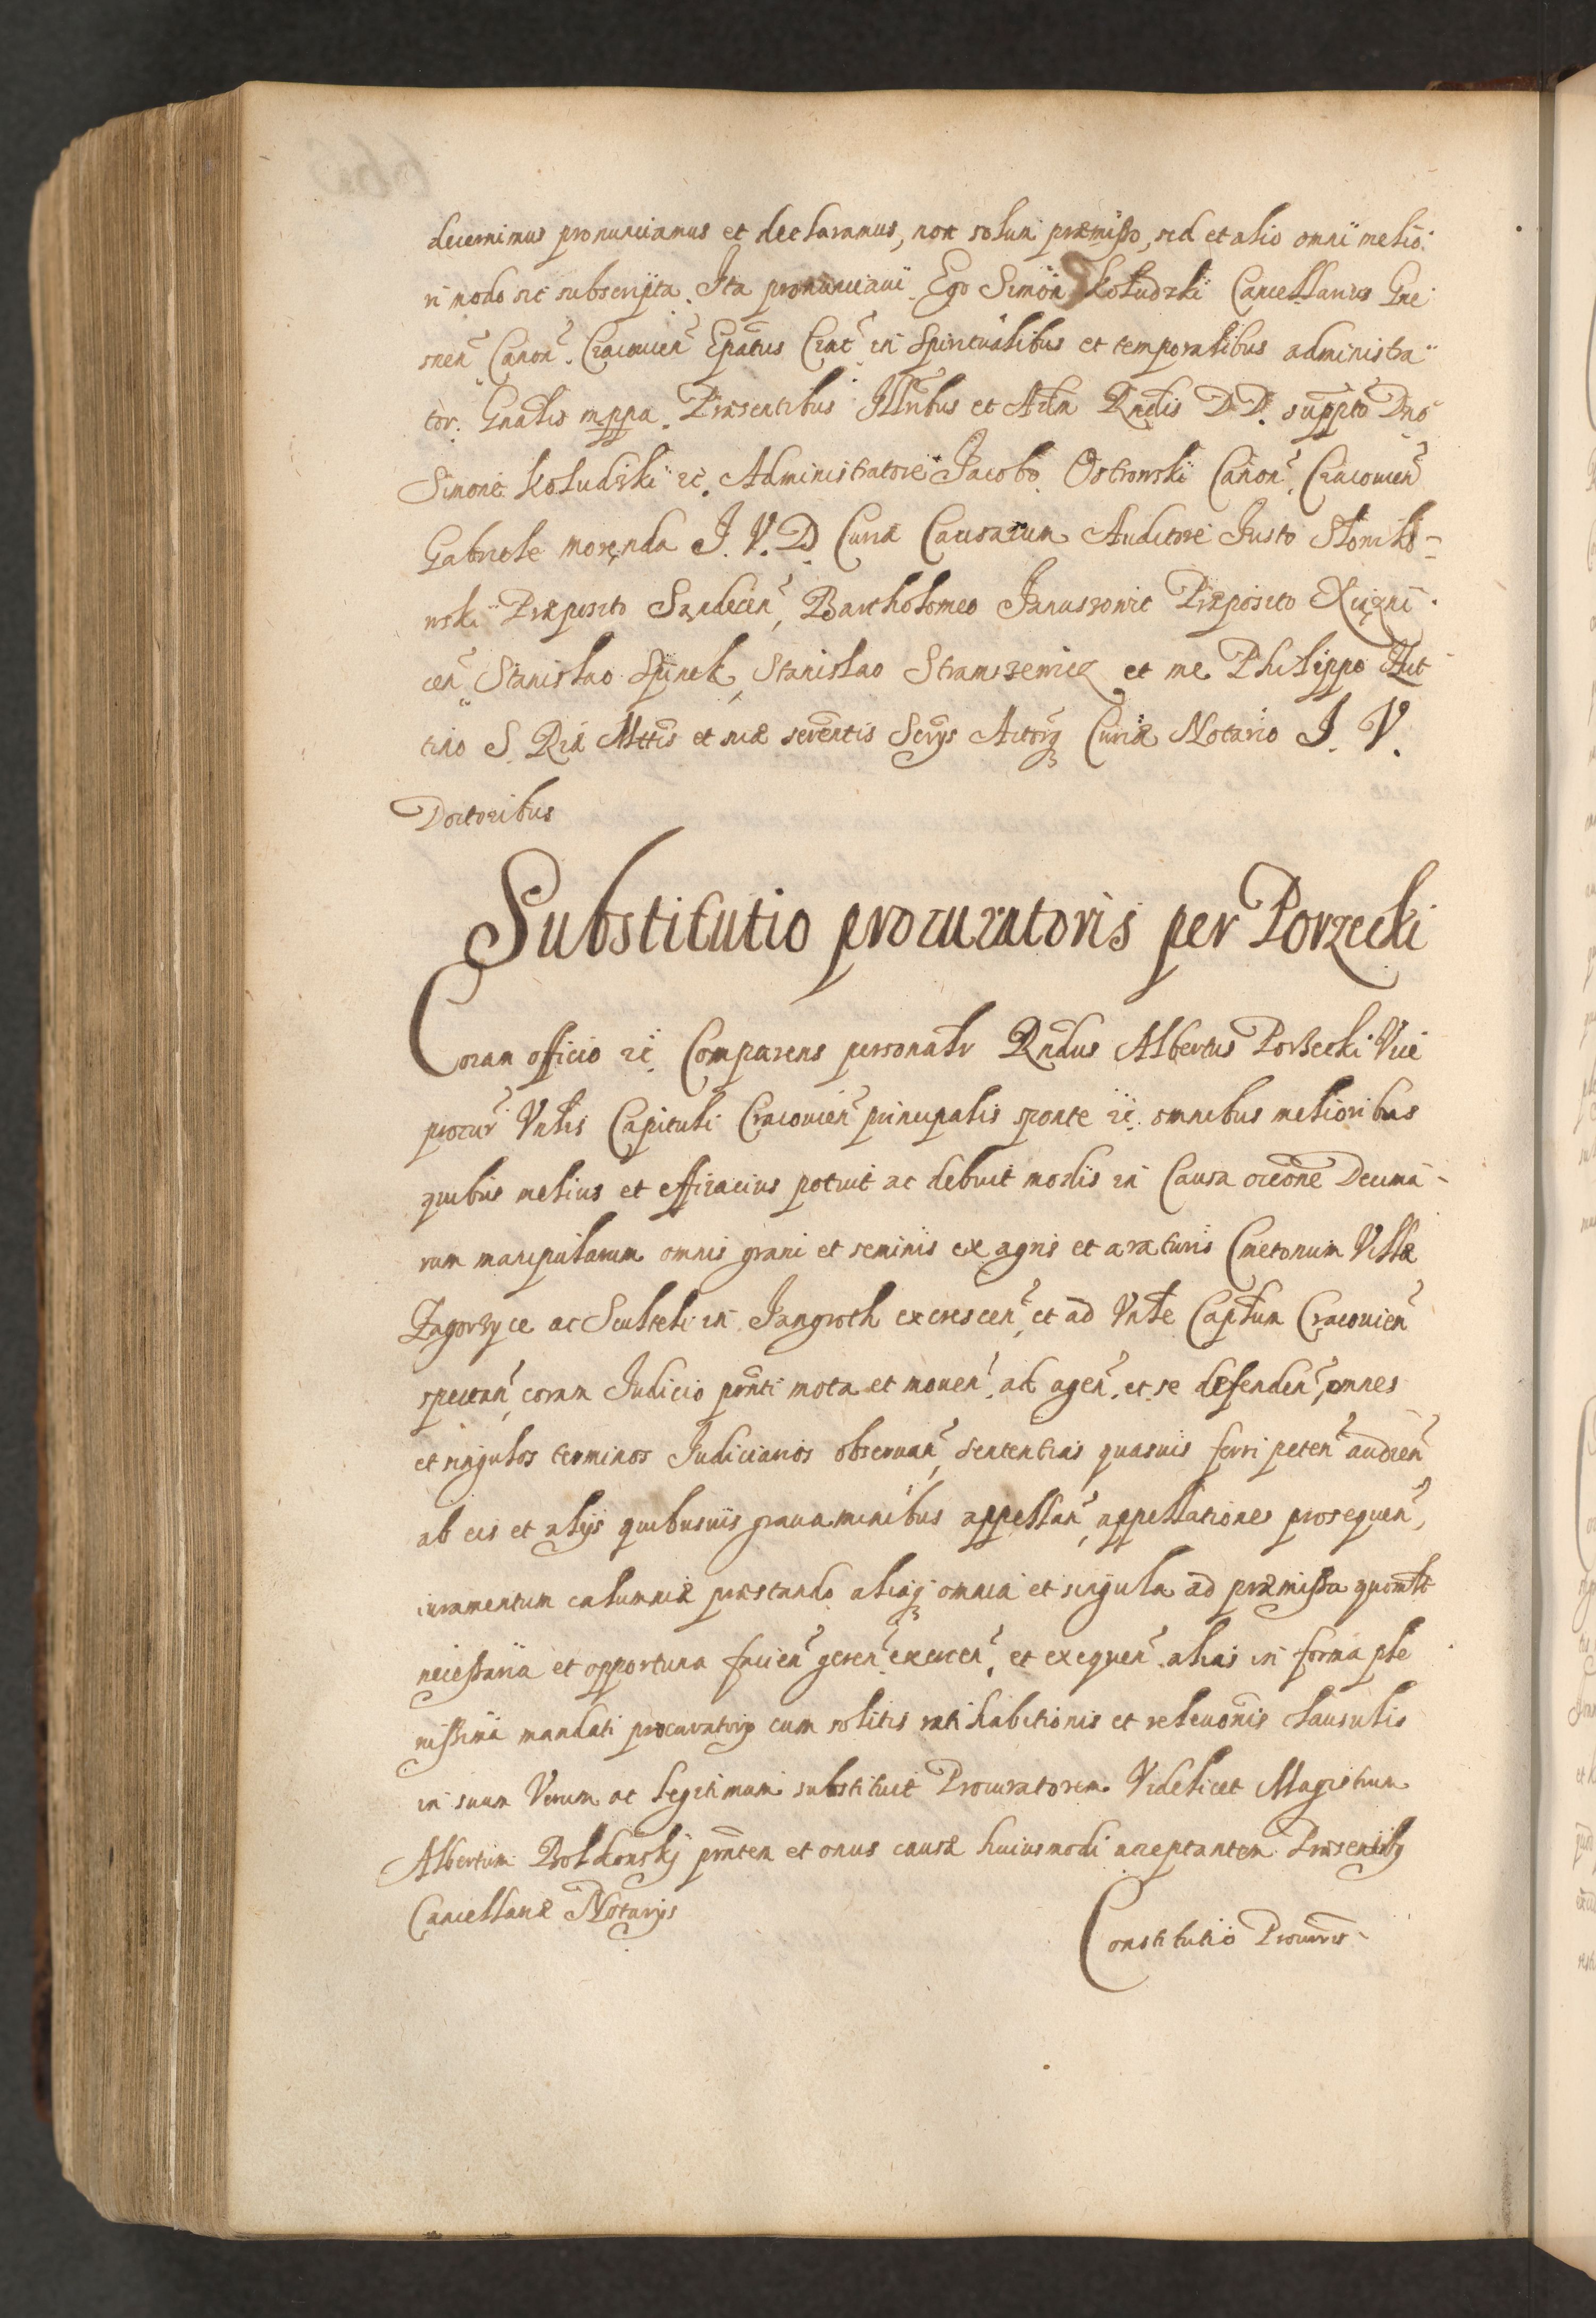 decernimus pronunciamus et declaramus, non solum præmisso, sed et alio omni melio
ri modo sic subscripta. Ita pronunciavi Ego Simon Koludzki Cancellarius Gne
snen Canon. Cracovien Epatus Crac in Spiritualibus et temporalibus administra
tor. Gnalis mppa. Præsentibus Illribus et Adm Rndis D D. suppto Dno
Simone Koludzki zc. Administratore Jacobo Ostrowski Canon. Cracovien
Gabriele morenda J. V. D Curiæ Causarum Auditore Justo Słowiko=
wski Præposito Sandecen, Bartholomeo Januszowic Præposito Xiązni
cen Stanislao Spinek, Stanislao Stramszewicz et me Philippo Lut
tino S. Riæ Mttis et suæ serentis Scrys Actorz Curiæ Notario J. V.
Doctoribus
Substitutio procuratoris per Porzecki
Coram officio zc. Comparens personalr Rndus Albertus Porzecki Vice
procur Vnlis Capituli Cracovien principalis sponte zc. omnibus melioribus
quibus melius et efficacius potuit ac debuit modis in Causa occone Decima
rum manipularum omnis grani et seminis ex agris et araturis Cmetonum Villæ
Zagorzyce ac Sculteti in Jangroth excrescen, et ad Vnle Captlum Cracovien
spectan, coram Judicio pnti mota et mouen. ad agen. et se defenden, omnes
et singulos terminos Judiciarios obseruan, sententias quasuis ferri peten audien
ab eis et alijs quibusuis grauaminibus appellan, appellationes prosequen,
iuramentum calumniæ præstando aliaq omnia et singula ad præmissa quomlt
necessaria et opportuna facien geren exercen, et exequen alias in forma ple
nissima mandati procuratorij cum solitis ratihabitionis et releuonis clausulis
in suum Verum ac legitimum substituit Procuratorem Videlicet Magistrum
Albertum Bolkonskj pntem et onus causæ huiusmodi acceptantem Præsentibq
Cancellariæ Notarijs
Constitutio Procuris